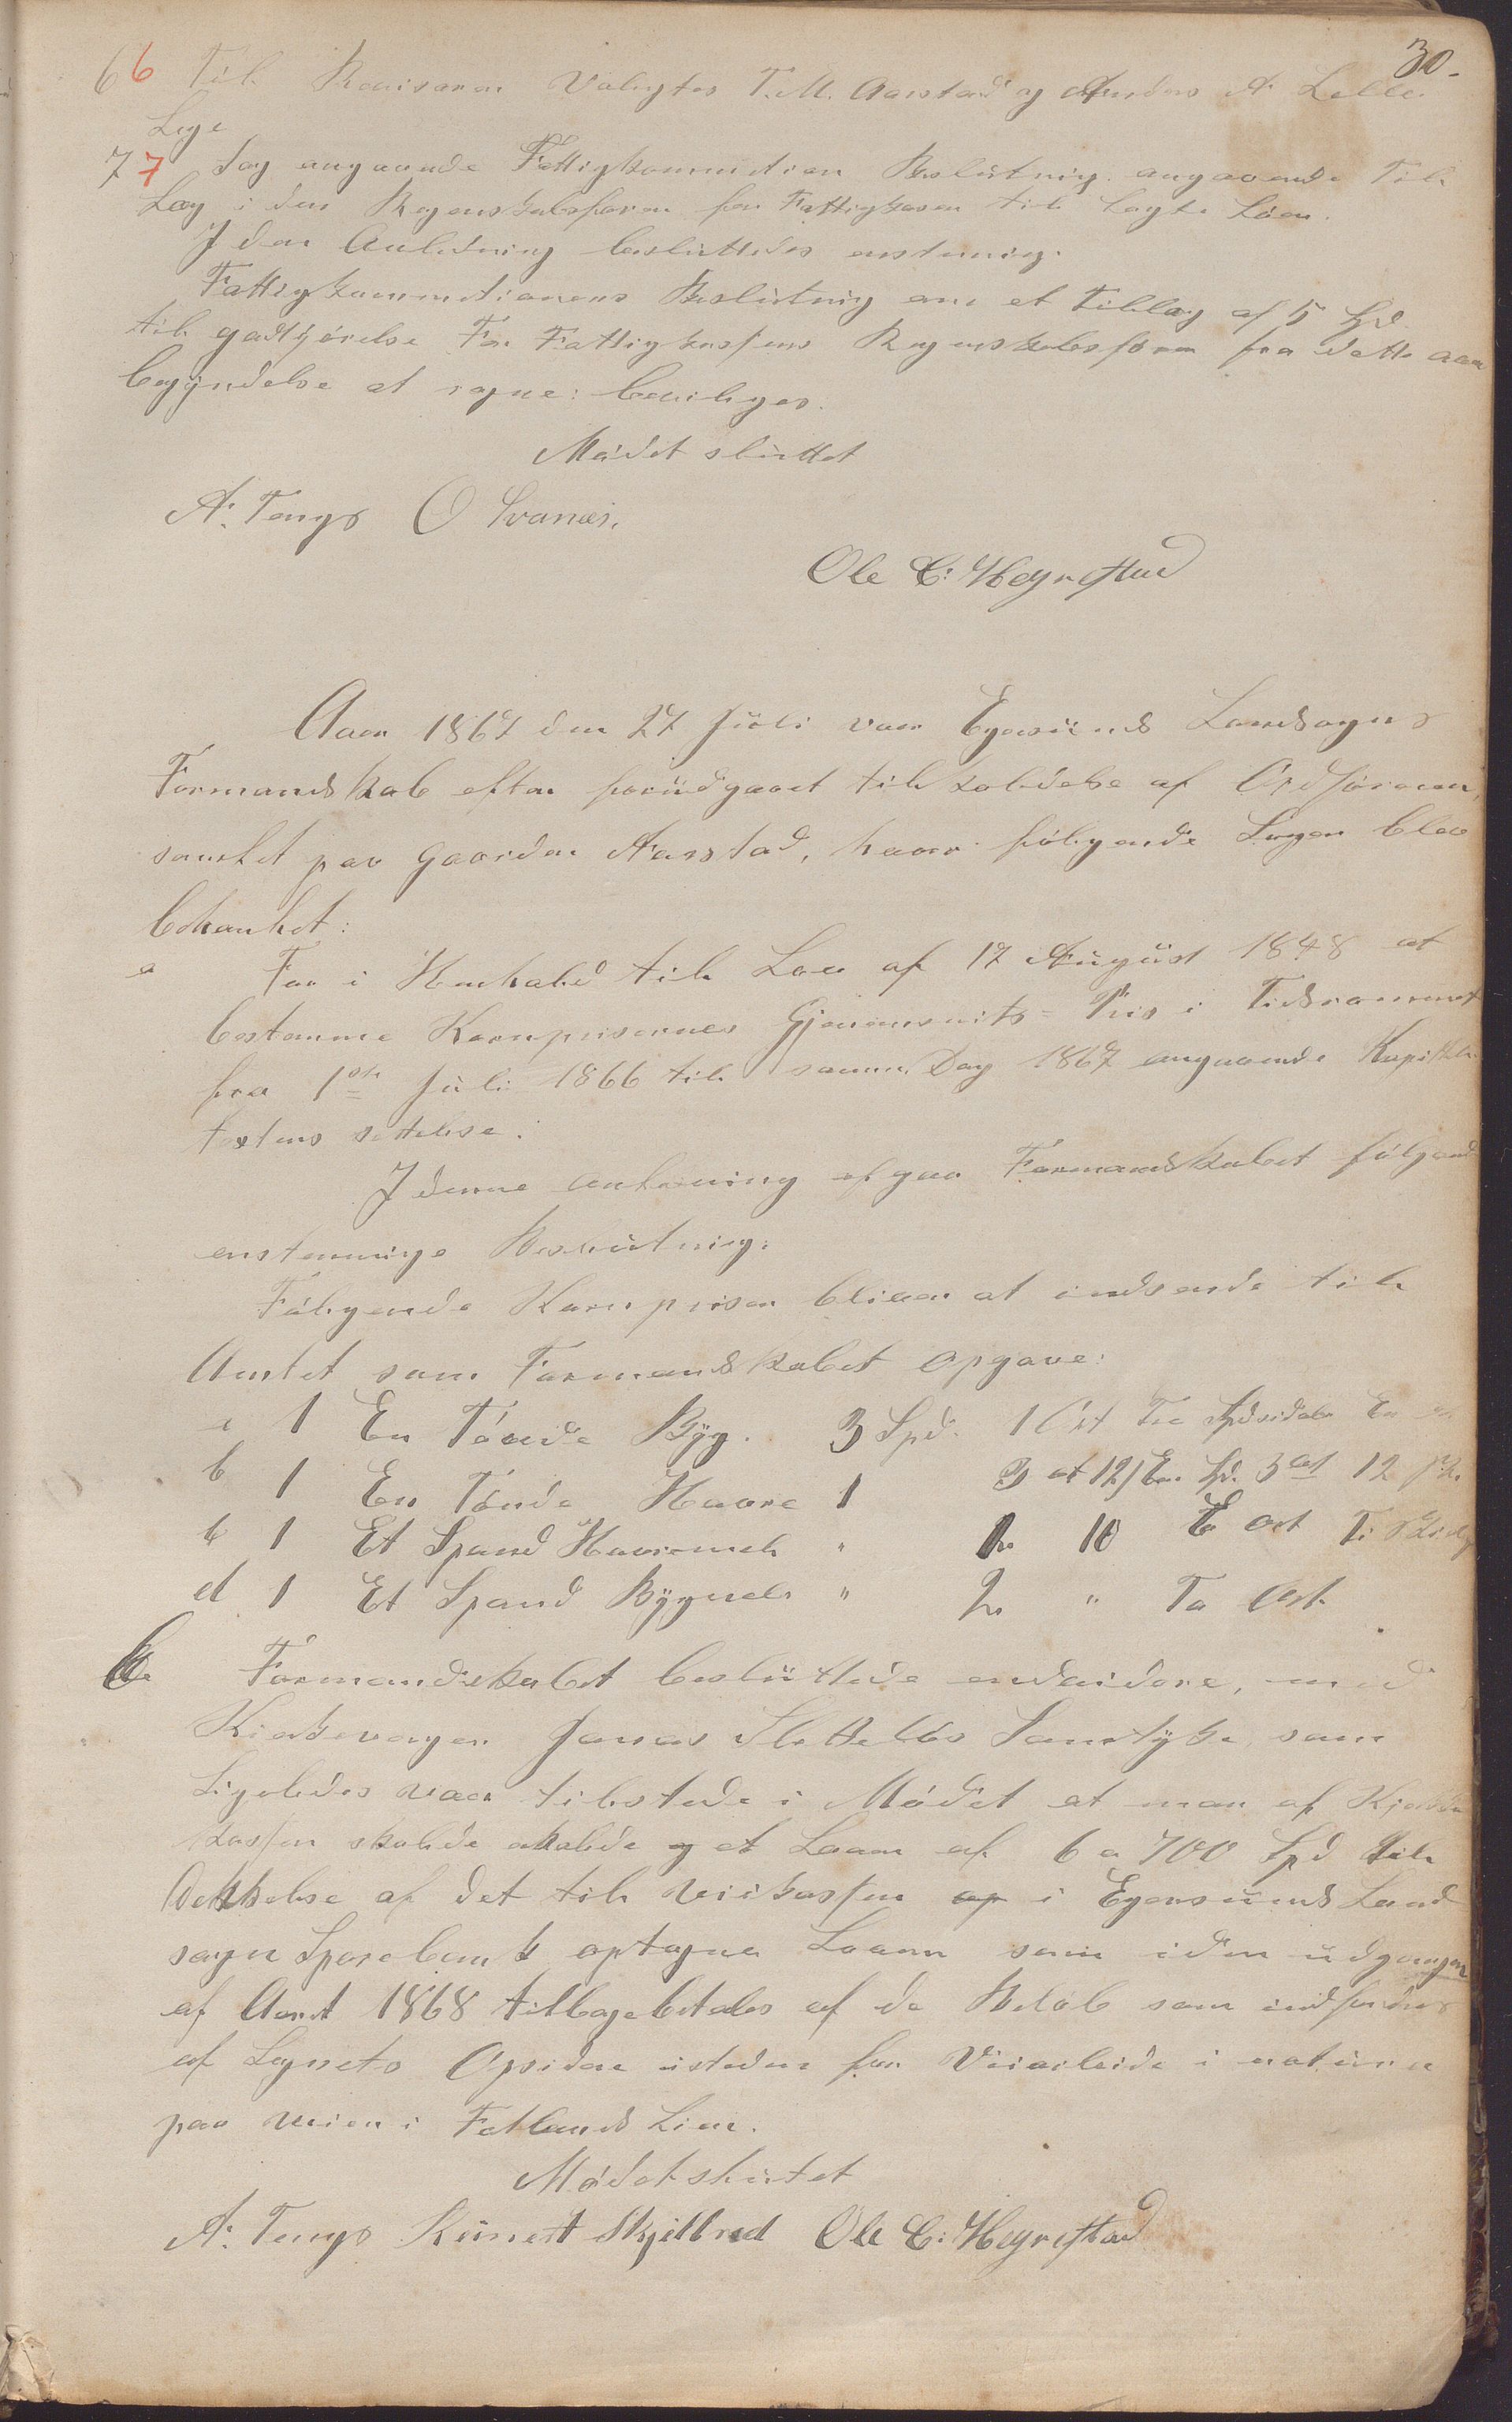 30.
6 6 Till Revisorer Valgtes T. M. Aarstad og Anders A Lelle
Lege
7 7 Sag angaaende Fattigkommition Beslutning angaaende Till
Læg i den Regenskabsføren for Fattigkasen till lagte Løn.
I den Anledning besluttedes enstemig.
Fattigkommitionens Beslutning om et Tillæg af 5 Spd.
till godtjørelse For Fattigkassens Regenskabsfører fra dette aar
begyndelse at regne: beviliges.
Mødet sluttet
A. Tengs O Svanæs.
Ole C: Høgrestad
Aar 1867 den 27 Juli var Egersunds Landsogns
Formandskab efter forudgaaet tillkaldelse af Ordføreren,
samlet paa Gaarden Aarstad, hvor følgende Sager blev
behanlet:
a For i Henhald till Lov af 17 August 1848 at
bestemme Kornprisernes Gjenemsnits-Pris i Tidsrommet
fra 1ste Juli 1866 till samme Dag 1867 angaaende Kapitels
textens settelse.
I denne anledning afgav Formandskabet følgende
enstemmige Beslutning:
Følgende Kornpriser bliver at indsende till
Amtet som Formandskabet Opgave:
a 1 En Tønde Byg. 3 Spd. 1 Ort Tre Spdsidaler En
b 1 En Tønde Havre 1 3 ort 12/ En Spd. 3 ort 12 sk.
c 1 Et Spand Havremell " 1. 10 En Ort Ti Skilg
d 1 Et Spand Bygmell " 2. " To Ort.
b. Formandskabet besluttede endvidere, med
Kirkevergen Jonas Slettebøs Samtykke, som
Ligeledes var tilstede i Mødet at man af Kirke
kassen skulde et Laan af 6 a 700 Spd till
Dekkelse af det till Veikassen ap i Egersunds Land
sogn Sparebank optagne Laan som iden udgangen
af Aaret 1868 tilbagebetales af de Beløb som indfordres
af Sognets Opsidere isteden for Veiarbeide i natura
paa veien i Fotlands Lien.
Mødet sluttet
A. Tengs Kunert Skjelbred Ole C: Høgrestad